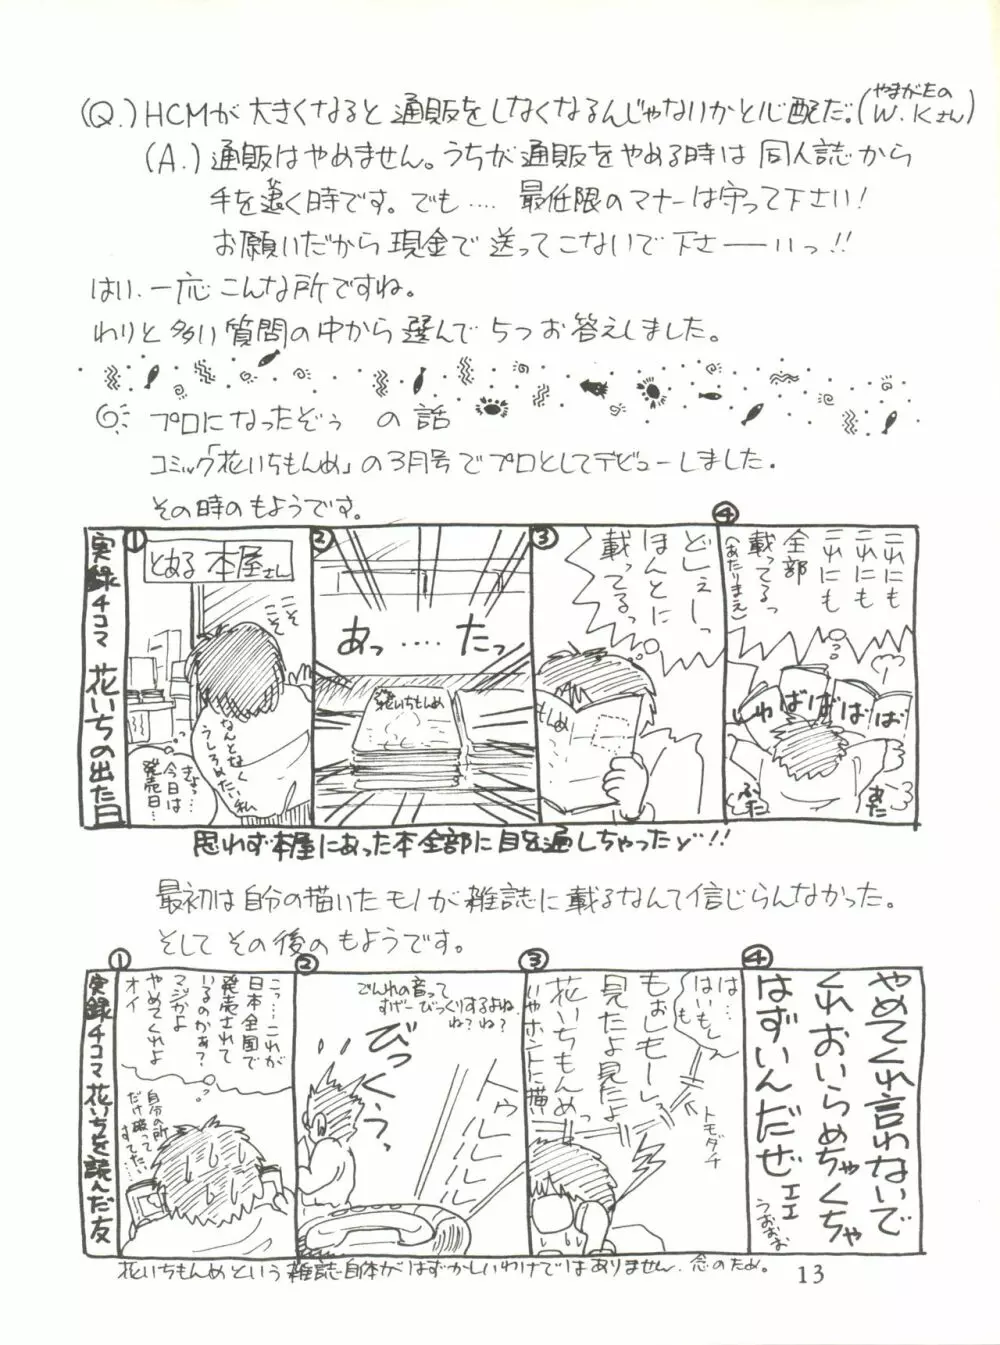 (Q.) HCMが大きくなると通販をしなくなるんじゃないかと心配だ。(やまがたの W.Kさん)
(A.) 通販はやめません。うちが通販をやめる時は同人誌から
手を退く時です。でも‥‥最低限のマナーは守って下さい!
お願いだから現金で送ってこないで下さーーいっ!!
はい、一応こんな所ですね。
わりと多い質問の中から選んで5つお答えしました。
◎ プロになったぞぅ の話
コミック「花いちもんめ」の3月号でプロとしてデビューしました。
その時のもようです。
実録4コマ 花いちの出た日
①
とある本屋さん
こそこそ
なんとなく
うしろめたい私
きょ…
今日は
発売日…
②
あっ‥‥たっ
花いちもんめ
③
どしぇーっ
ほんとに
載ってるっ
もんめ
④
これにも
これにも
これにも
全部
載ってるっ
(あたりまえ)
しゅばばばばば
あたふた
思わず本屋にあった本全部に目を通しちゃったy!!
最初は自分の描いたモノが雑誌に載るなんて信じらんなかった。
そしてその後のもようです。
実録4コマ 花いちを読んだ友
①
こっ…これが
日本全国で
発売されて
いるのかぁ?
マジかよ
やめてくれよ
オイ
自分の所
だけ破って
すてたい
②
でんわの音って
すげーびっくりするよね
ね?ね?
びっくぅっ
トゥルルルルル
③
は…
はいもしもし
もぉしもーしっ
見たよ見たよ
花いちもんめっ
いやホントに描い
トモダチ
④
やめてくれ言わないで
くれおいらめちゃくちゃ
はずいんだぜェェ
うおおお
花いちもんめという雑誌自体がはずかしいわけではありません、念のため。
13